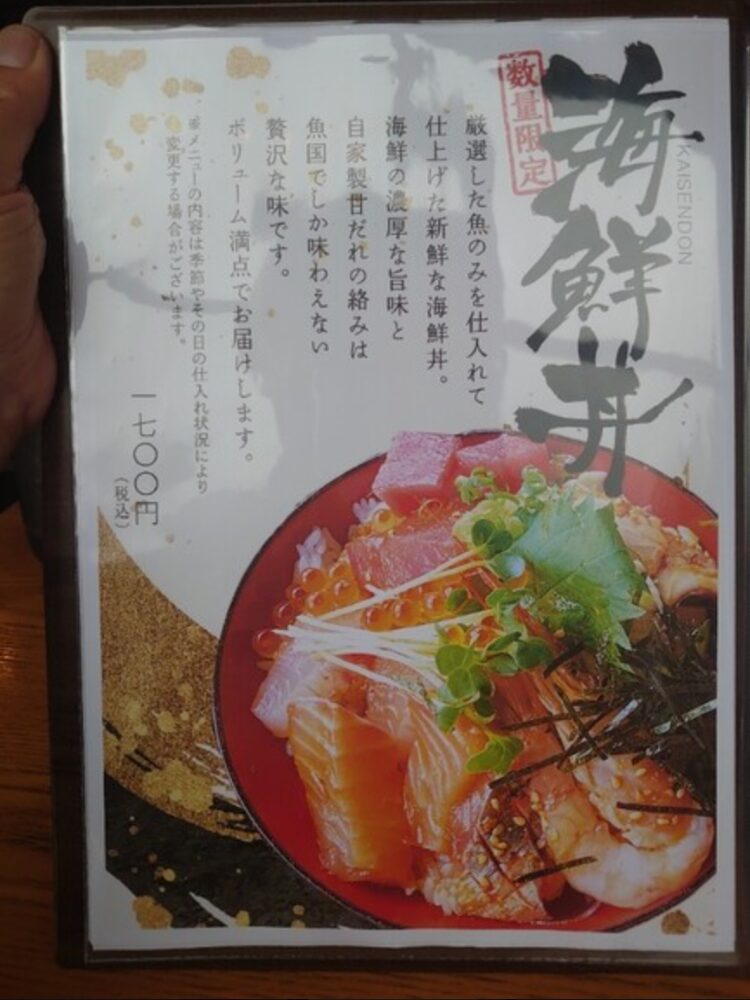 海鮮丼
KAISENDON
数量限定
厳選した魚のみを仕入れて
仕上げた新鮮な海鮮丼。
海鮮の濃厚な旨味と
自家製甘だれの絡みは
魚国でしか味わえない
贅沢な味です。
ボリューム満点でお届けします。
※メニューの内容は季節やその日の仕入れ状況により
変更する場合がございます。
一七〇〇円
(税込)